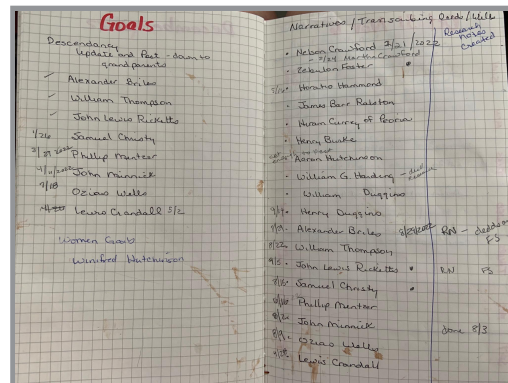 Goals
Descendancy
Update and Post - down to
grandparents
Alexander Briles
William Thompson
John Lewis Ricketts
1/26 Samuel Christy
2022 Phillip Mentzer
4/11/2022 John Minnick
Ozias Wells
Lewis Crandall 5/2
Women Goals
Winifred Hutchinson
Narratives / Transcribing Deeds / Wills
Research
notes
created
Nelson Crawford 2/21/2022
- 2/24 Martha Crawford
Zebulon Foster
Horatio Hammond
James Barr Ralston
Hiram Currey of Peoria
Henry Burke
Aaron Hutchinson
William G. Harding - deed
William Duggins
Henry Duggins
Alexander Briles 8/29/2022 RN - deeds on
FS
8/22 William Thompson
9/5 John Lewis Ricketts RN FS
Samuel Christy
Phillip Mentzer
John Minnick done 8/3
Ozias Wells
Lewis Crandall